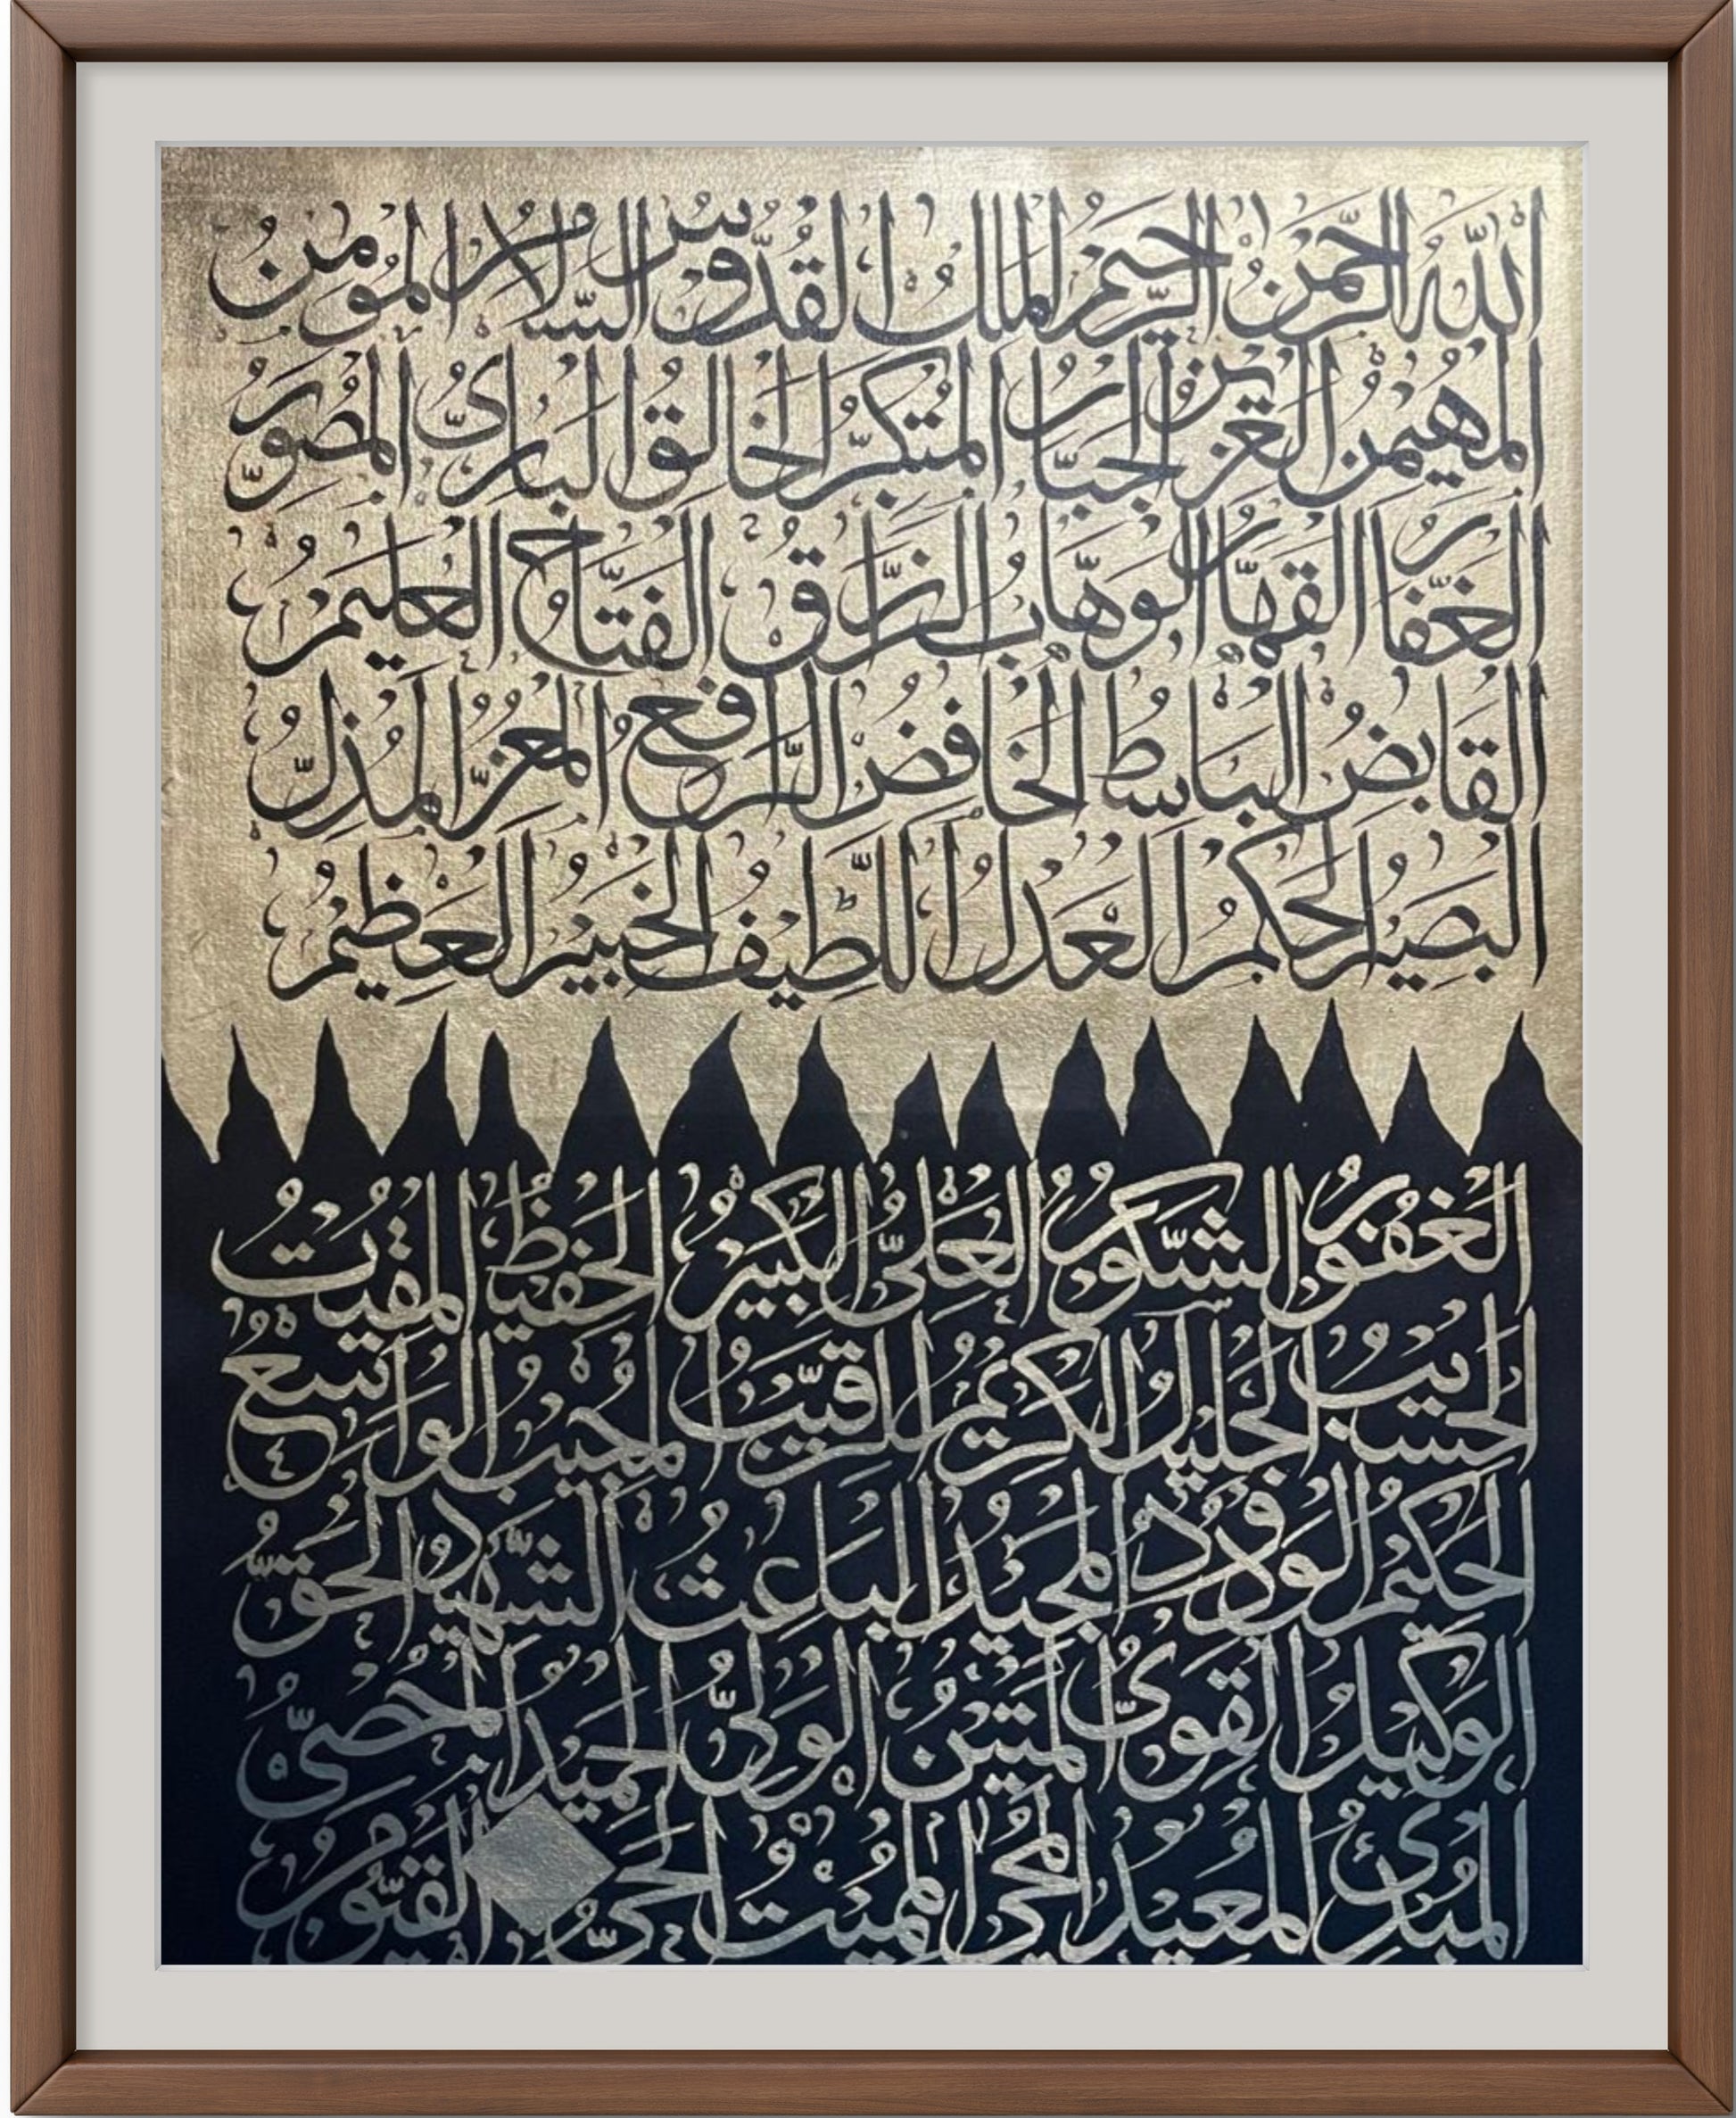 اللهُ الرَّحْمٰنُ الرَّحِيْمُ المَلِكُ القُدُّوْسُ السَّلَامُ المُؤْمِنُ
المُهَيْمِنُ العَزِيْزُ الجَبَّارُ المُتَكَبِّرُ الخَالِقُ البَارِئُ المُصَوِّرُ
الغَفَّارُ القَهَّارُ الوَهَّابُ الرَّزَّاقُ الفَتَّاحُ العَلِيْمُ
القَابِضُ البَاسِطُ الخَافِضُ الرَّافِعُ المُعِزُّ المُذِلُّ
البَصِيْرُ الحَكَمُ العَدْلُ اللَّطِيْفُ الخَبِيْرُ العَظِيْمُ
الغَفُوْرُ الشَّكُوْرُ العَلِيُّ الكَبِيْرُ الحَفِيْظُ المُقِيْتُ
الحَسِيْبُ الجَلِيْلُ الكَرِيْمُ الرَّقِيْبُ المُجِيْبُ الوَاسِعُ
الحَكِيْمُ الوَدُوْدُ المَجِيْدُ البَاعِثُ الشَّهِيْدُ الحَقُّ
الوَكِيْلُ القَوِيُّ المَتِيْنُ الوَلِيُّ الحَمِيْدُ المُحْصِيُّ
المُبْدِئُ المُعِيْدُ المُحْيِي المُمِيْتُ الحَيُّ القَيُّوْمُ